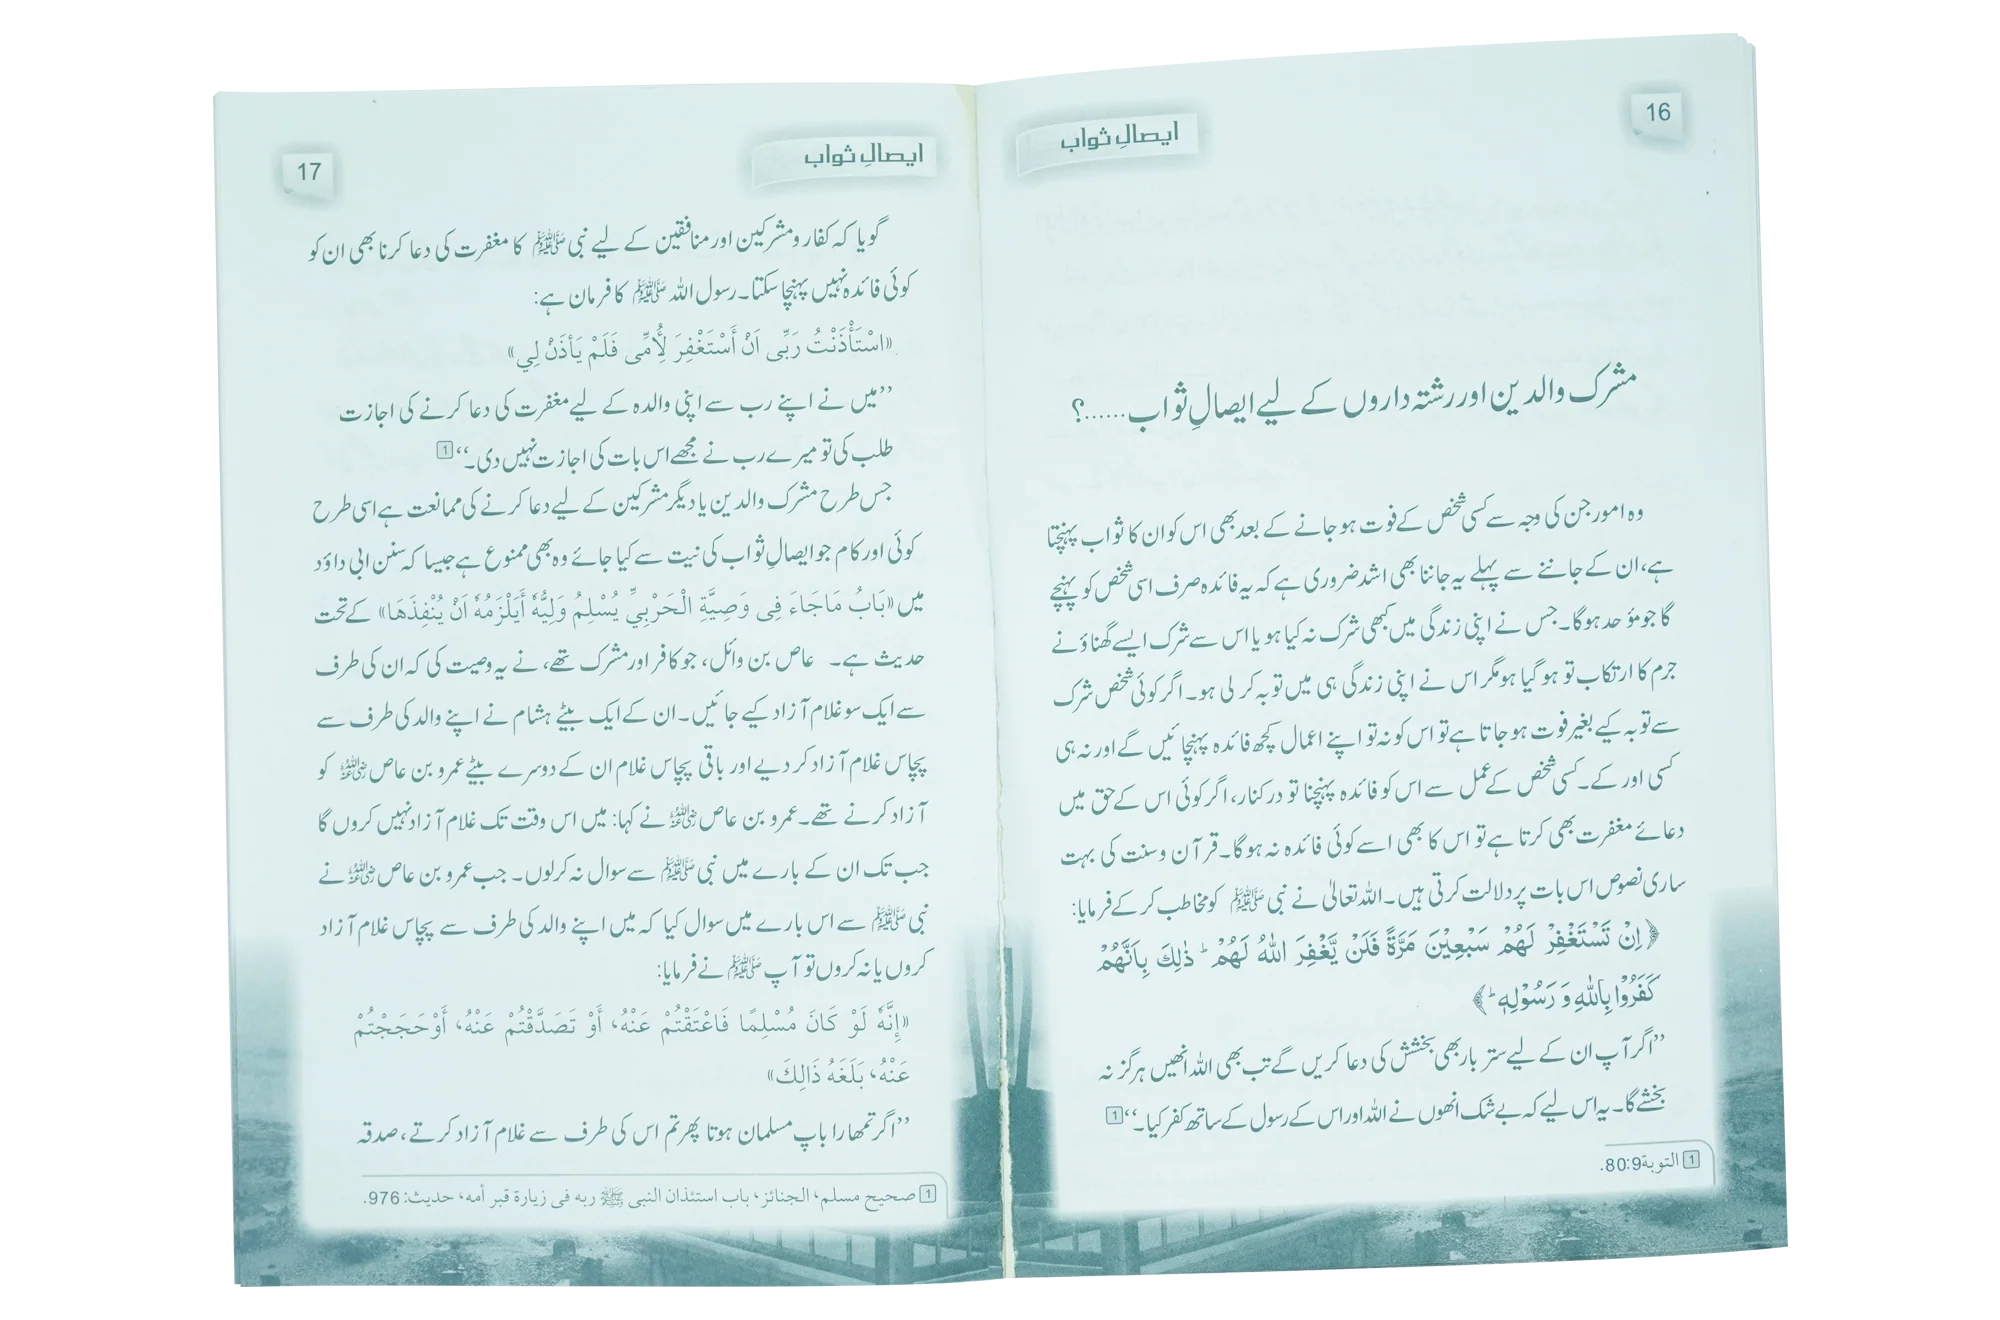 16
ایصالِ ثواب
مشرک والدین اور رشتہ داروں کے لیے ایصالِ ثواب......؟
وہ امور جن کی وجہ سے کسی شخص کے فوت ہو جانے کے بعد بھی اس کو ان کا ثواب پہنچتا
ہے، ان کے جاننے سے پہلے یہ جاننا بھی اشد ضروری ہے کہ یہ فائدہ صرف اسی شخص کو پہنچے
گا جو مؤحد ہوگا۔ جس نے اپنی زندگی میں کبھی شرک نہ کیا ہو یا اس سے شرک ایسے گھناؤنے
جرم کا ارتکاب تو ہو گیا ہو مگر اس نے اپنی زندگی ہی میں توبہ کر لی ہو۔ اگر کوئی شخص شرک
سے توبہ کیے بغیر فوت ہو جاتا ہے تو اس کو نہ تو اپنے اعمال کچھ فائدہ پہنچائیں گے اور نہ ہی
کسی اور کے۔ کسی شخص کے عمل سے اس کو فائدہ پہنچنا تو درکنار، اگر کوئی اس کے حق میں
دعائے مغفرت بھی کرتا ہے تو اس کا بھی اسے کوئی فائدہ نہ ہوگا۔ قرآن وسنت کی بہت
ساری نصوص اس بات پر دلالت کرتی ہیں۔ اللہ تعالیٰ نے نبی ﷺ کو مخاطب کر کے فرمایا:
﴿اِنْ تَسْتَغْفِرْ لَهُمْ سَبْعِيْنَ مَرَّةً فَلَنْ يَّغْفِرَ اللهُ لَهُمْ ؕ ذٰلِكَ بِاَنَّهُمْ
كَفَرُوْا بِاللهِ وَ رَسُوْلِهٖ ؕ﴾
’’اگر آپ ان کے لیے ستر بار بھی بخشش کی دعا کریں گے تب بھی اللہ انھیں ہرگز نہ
بخشے گا۔ یہ اس لیے کہ بے شک انھوں نے اللہ اور اس کے رسول کے ساتھ کفر کیا۔‘‘ 1
1 التوبة 80:9.
17
ایصالِ ثواب
گویا کہ کفار ومشرکین اور منافقین کے لیے نبی ﷺ کا مغفرت کی دعا کرنا بھی ان کو
کوئی فائدہ نہیں پہنچا سکتا۔ رسول اللہ ﷺ کا فرمان ہے:
«اسْتَأْذَنْتُ رَبِّى اَنْ أَسْتَغْفِرَ لِأُمِّى فَلَمْ يَأذَنْ لِي»
’’میں نے اپنے رب سے اپنی والدہ کے لیے مغفرت کی دعا کرنے کی اجازت
طلب کی تو میرے رب نے مجھے اس بات کی اجازت نہیں دی۔‘‘ 1
جس طرح مشرک والدین یا دیگر مشرکین کے لیے دعا کرنے کی ممانعت ہے اسی طرح
کوئی اور کام جو ایصالِ ثواب کی نیت سے کیا جائے وہ بھی ممنوع ہے جیسا کہ سنن ابی داؤد
میں «بَابُ مَاجَاءَ فِى وَصِيَّةِ الْحَرْبِيِّ يُسْلِمُ وَلِيُّهٗ أَيَلْزَمُهٗ اَنْ يُنْفِذَهَا» کے تحت
حدیث ہے۔ عاص بن وائل، جو کافر اور مشرک تھے، نے یہ وصیت کی کہ ان کی طرف
سے ایک سو غلام آزاد کیے جائیں۔ ان کے ایک بیٹے ہشام نے اپنے والد کی طرف سے
پچاس غلام آزاد کر دیے اور باقی پچاس غلام ان کے دوسرے بیٹے عمرو بن عاص رضی اللہ عنہ کو
آزاد کرنے تھے۔ عمرو بن عاص رضی اللہ عنہ نے کہا: میں اس وقت تک غلام آزاد نہیں کروں گا
جب تک ان کے بارے میں نبی ﷺ سے سوال نہ کر لوں۔ جب عمرو بن عاص رضی اللہ عنہ نے
نبی ﷺ سے اس بارے میں سوال کیا کہ میں اپنے والد کی طرف سے پچاس غلام آزاد
کروں یا نہ کروں تو آپ ﷺ نے فرمایا:
«إِنَّهٗ لَوْ كَانَ مُسْلِمًا فَاعْتَقْتُمْ عَنْهُ، أَوْ تَصَدَّقْتُمْ عَنْهُ، أَوْحَجَجْتُمْ
عَنْهُ، بَلَغَهُ ذَالِكَ»
’’اگر تمھارا باپ مسلمان ہوتا پھر تم اس کی طرف سے غلام آزاد کرتے، صدقہ
1 صحيح مسلم، الجنائز، باب استئذان النبى ﷺ ربه فى زيارة قبر أمه، حديث: 976.